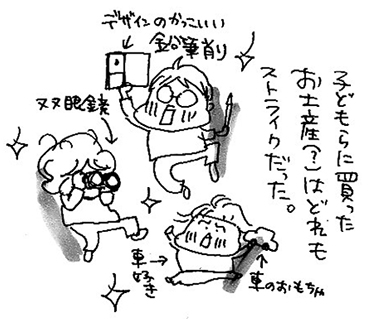 子どもらに買った
お土産(?)はどれも
ストライクだった。
デザインのかっこいい
鉛筆削り
双眼鏡
車好き
車のおもちゃ